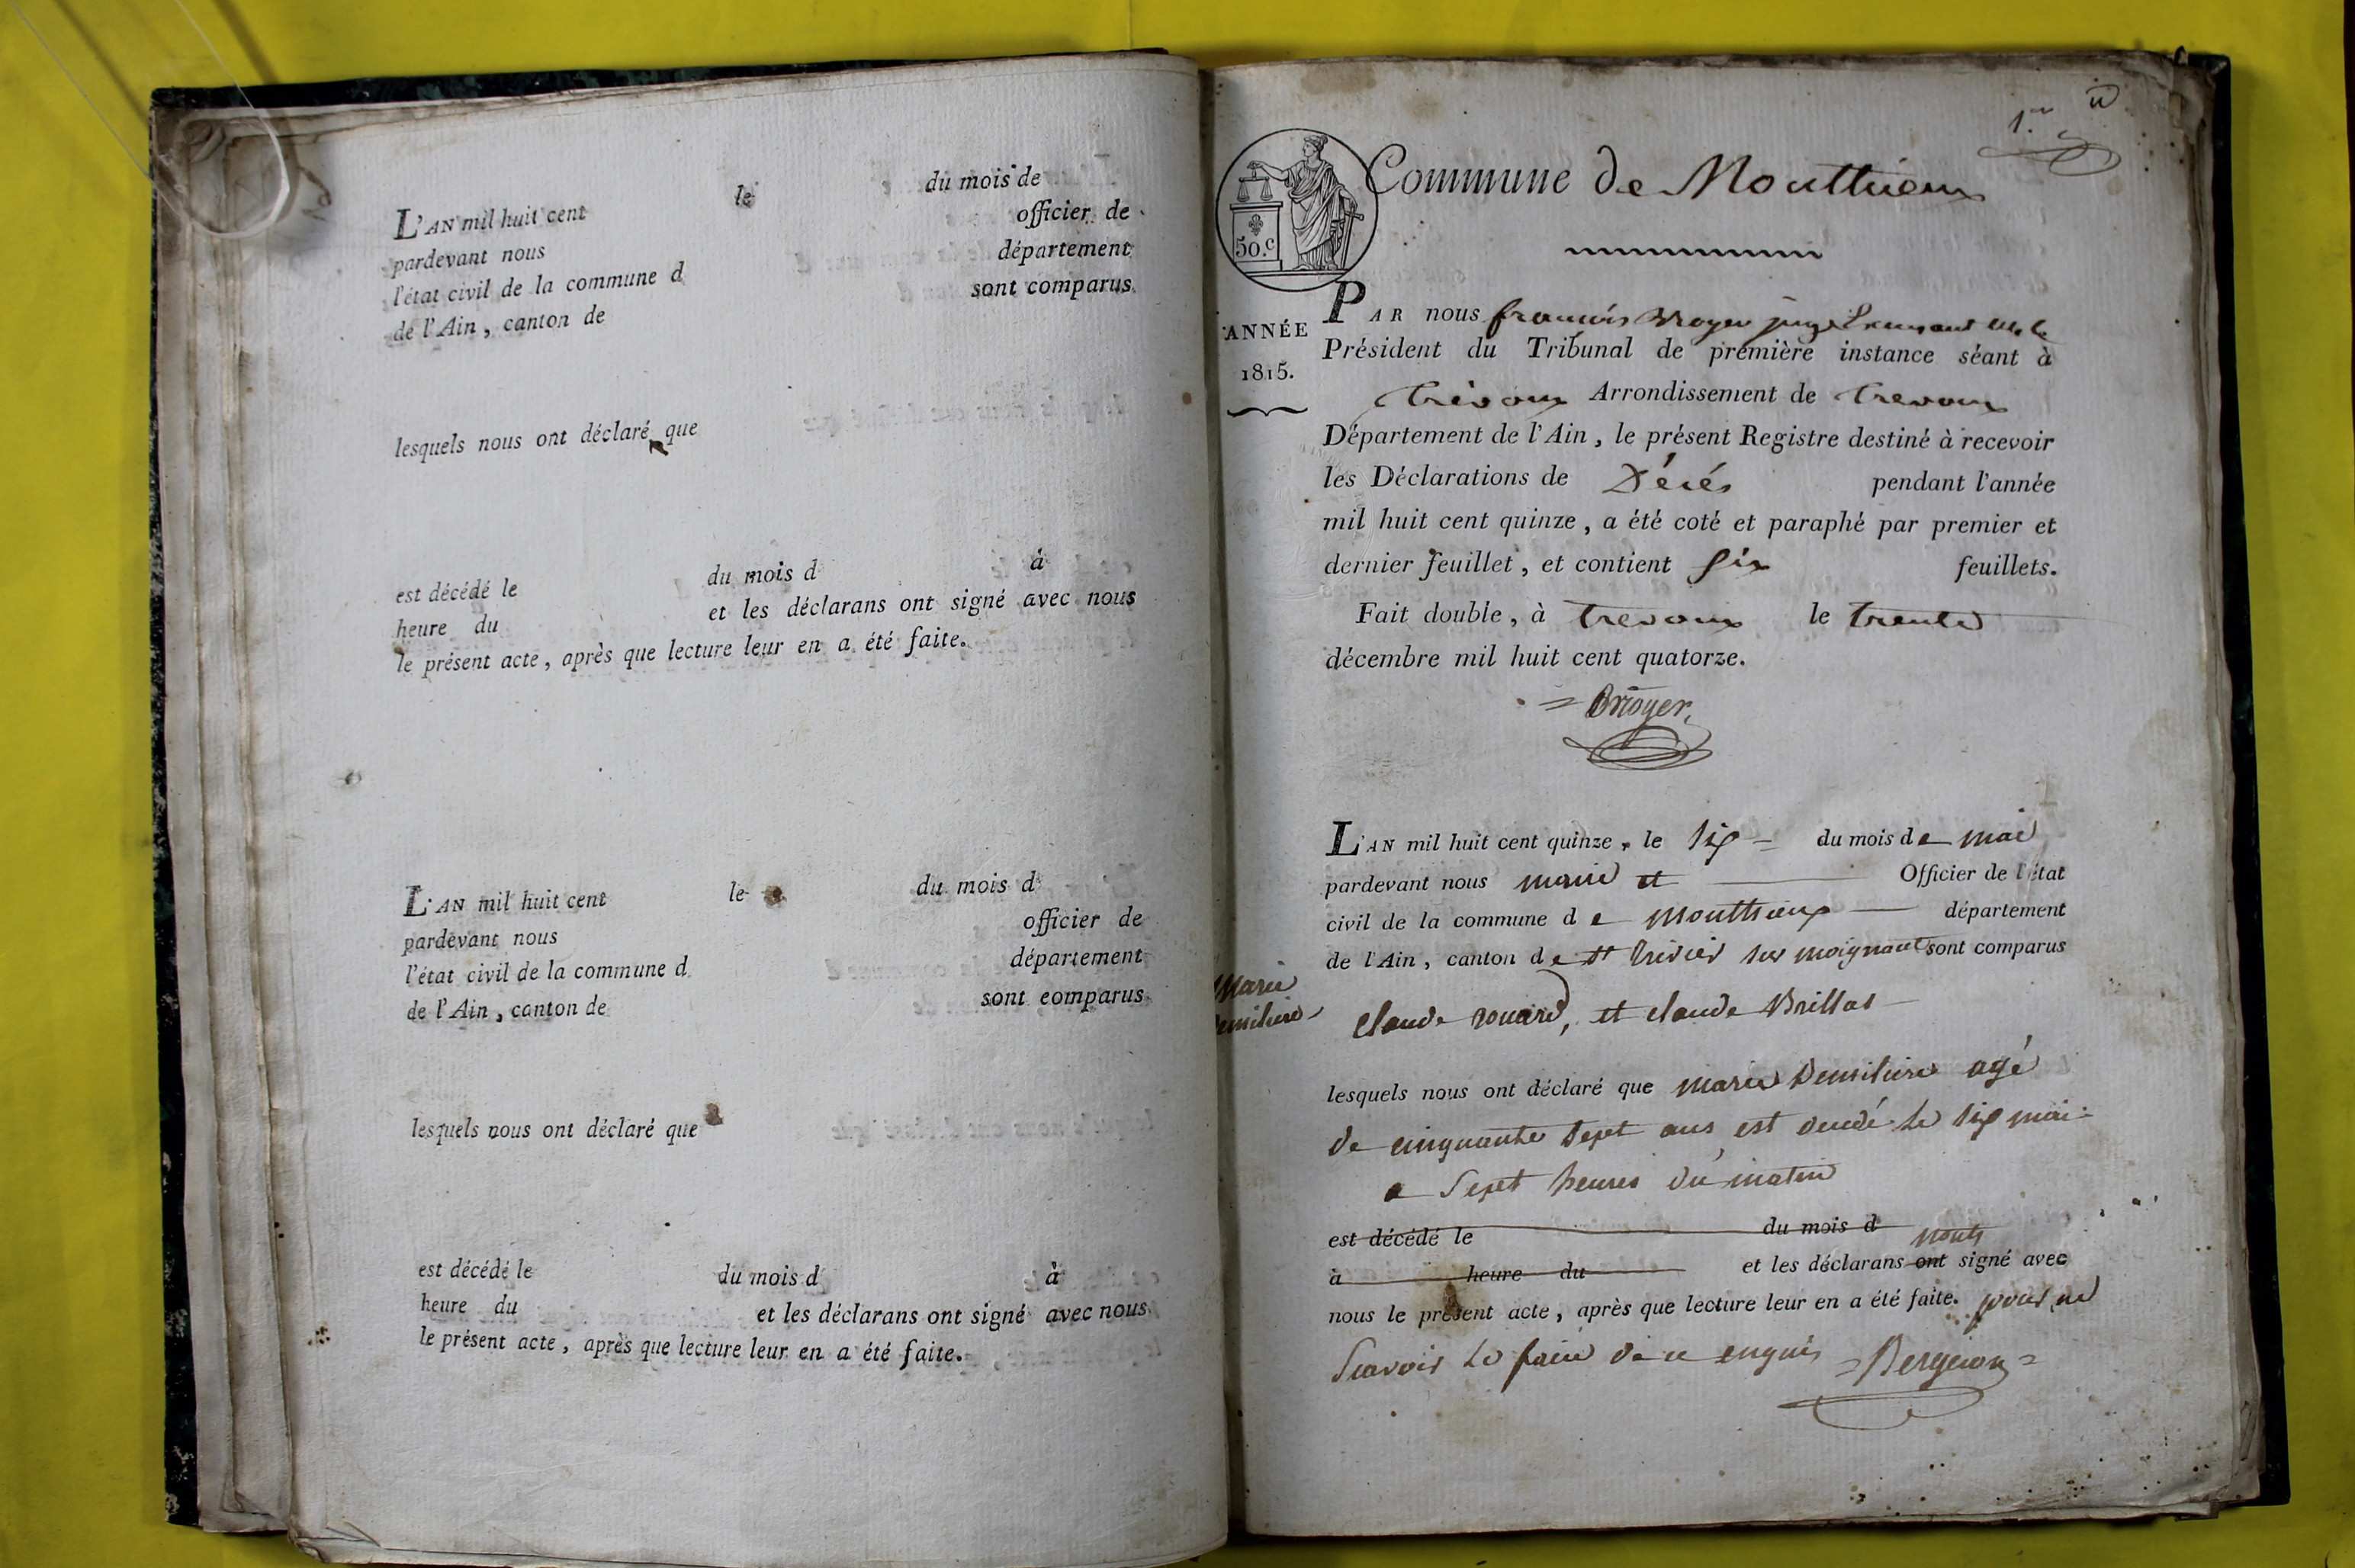 L'AN mil huit cent le du mois de
pardevant nous officier de
l'état civil de la commune d département
de l'Ain, canton de sont comparus
lesquels nous ont déclaré que
est décédé le du mois d à
heure du et les déclarans ont signé avec nous
le présent acte, après que lecture leur en a été faite.
L'AN mil huit cent le du mois d
pardevant nous officier de
l'état civil de la commune d département
de l'Ain, canton de sont comparus
lesquels nous ont déclaré que
est décédé le du mois d à
heure du et les déclarans ont signé avec nous
le présent acte, après que lecture leur en a été faite.
1.er
Commune de Monthieux
50.c
ANNÉE
1815.
PAR nous françois Broyer juge
Président du Tribunal de première instance séant à
trévoux Arrondissement de trevoux
Département de l'Ain, le présent Registre destiné à recevoir
les Déclarations de Décés pendant l'année
mil huit cent quinze, a été coté et paraphé par premier et
dernier feuillet, et contient Six feuillets.
Fait double, à trevoux le trente
décembre mil huit cent quatorze.
Broyer
L'AN mil huit cent quinze, le six du mois de mai
pardevant nous maire et Officier de l'état
civil de la commune de Monthieux département
de l'Ain, canton de st trivier sur moignant sont comparus
Marie
claude rouard, et claude Brillat
lesquels nous ont déclaré que marie agé
de cinquante sept ans est decedé le six mai
a Sept heures du matin
est décédé le du mois d
nont
à heure du et les déclarans ont signé avec
nous le présent acte, après que lecture leur en a été faite. pour ne
Scavoir le faire de ce enquis Bergeron